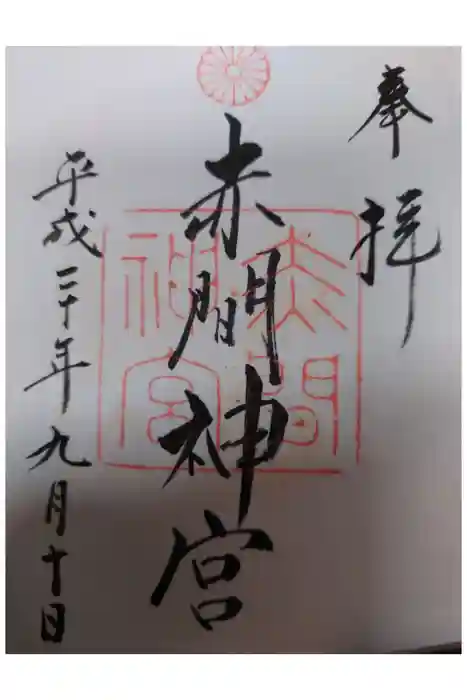 奉拝
赤間神宮
赤間神宮
平成二十年九月十日